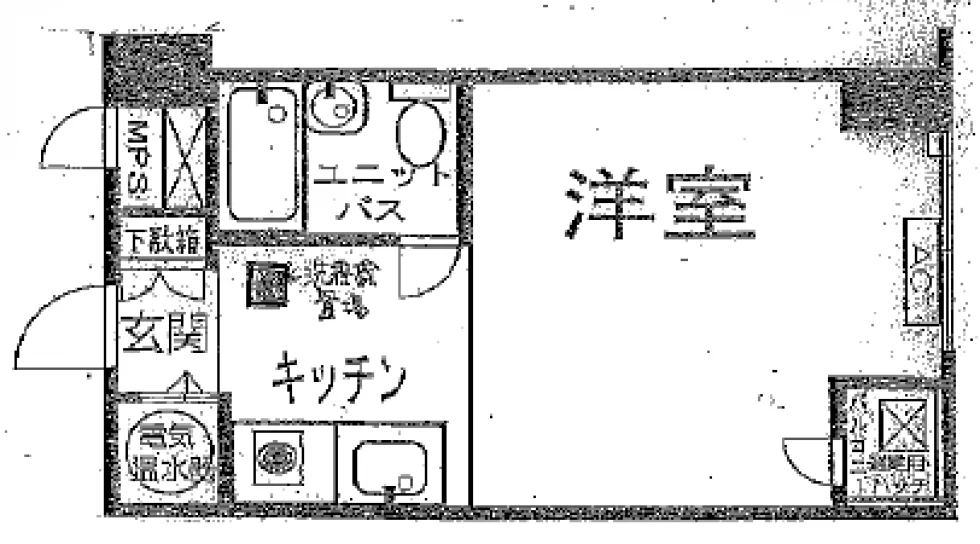 MPS
ユニット
バス
洋室
下駄箱
洗濯機
置場
AC
玄関
キッチン
電気
温水器
バルコニー
避難用
ハッチ